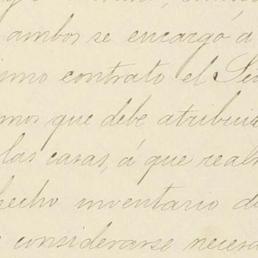 ambos se encargó á
ismo contrato el Se
mos que debe atribuir
las casas, á que real
hecho inventario d
considerarse necesa